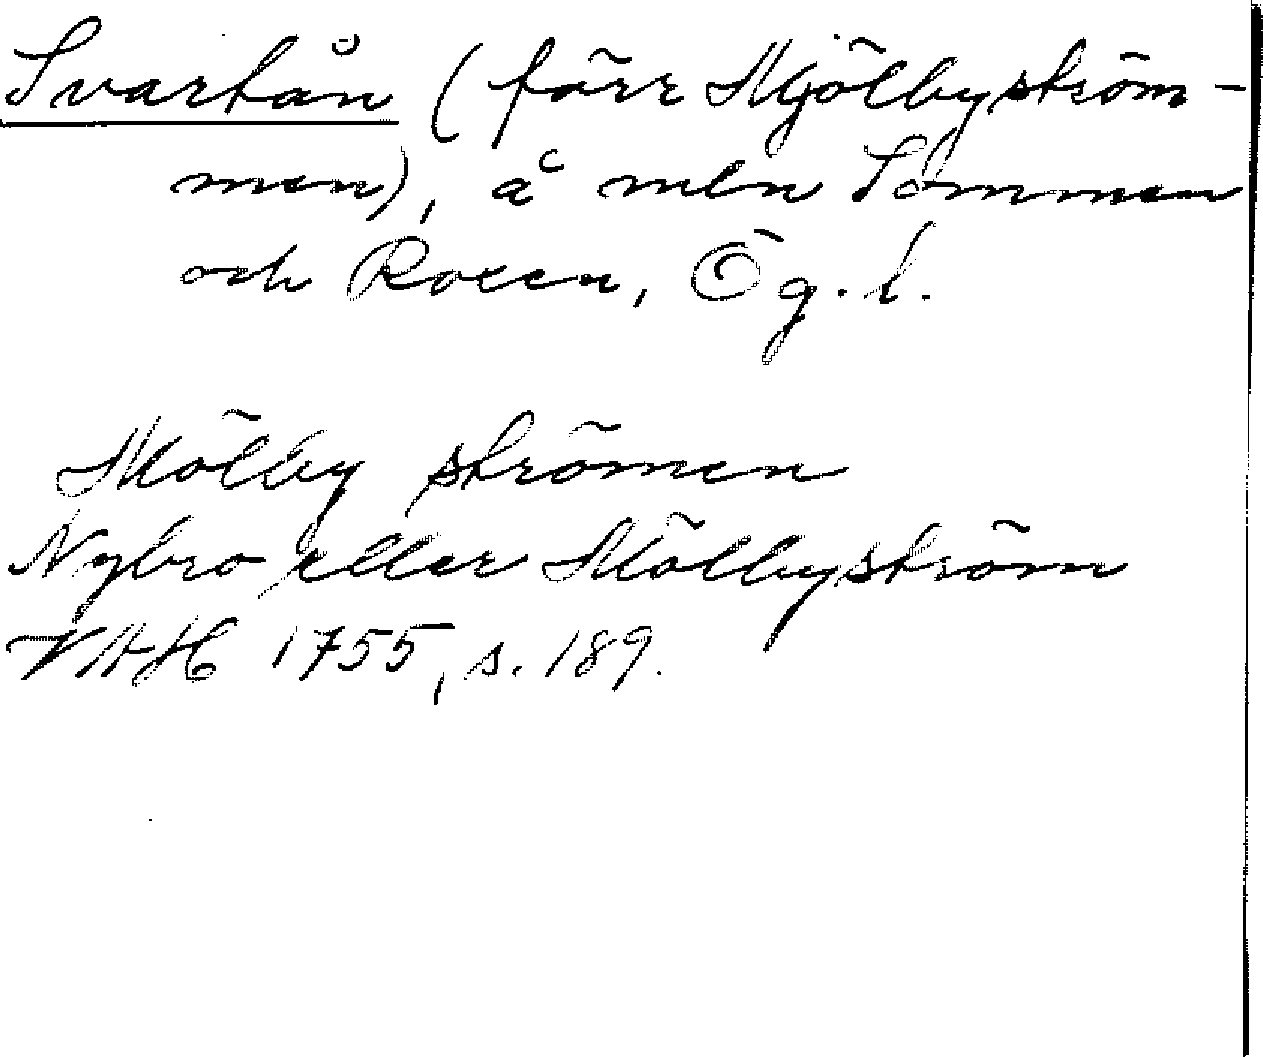 Svartån (förr Mjölbyström-
men), å mln Sommen
och Roxen, Ög. l.
Mölby strömen
Nybro eller Mölbyström
VAH 1755, s. 189.